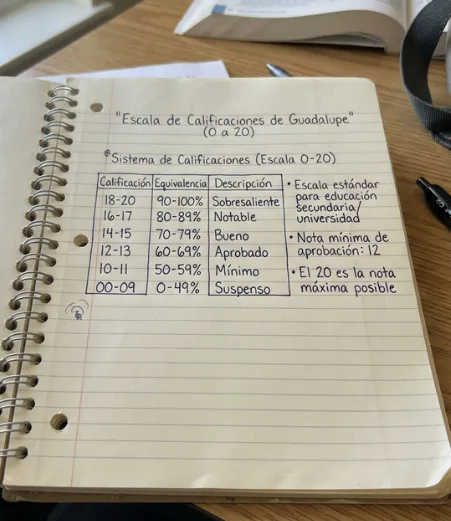 "Escala de Calificaciones de Guadalupe"
(0 a 20)
*Sistema de Calificaciones (Escala 0-20)
Calificación Equivalencia Descripción
18-20 90-100% Sobresaliente
16-17 80-89% Notable
14-15 70-79% Bueno
12-13 60-69% Aprobado
10-11 50-59% Mínimo
00-09 0-49% Suspenso
• Escala estándar
para educación
secundaria/
universidad
• Nota mínima de
aprobación: 12
• El 20 es la nota
máxima posible